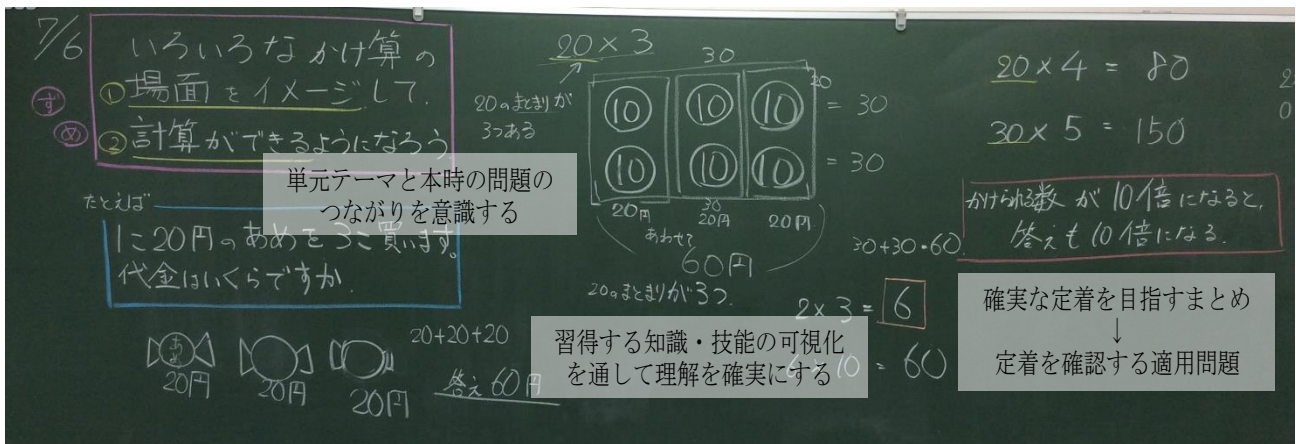 7/6
いろいろなかけ算の
① 場面をイメージして、
② 計算ができるようになろう。
ず
め
単元テーマと本時の問題の
つながりを意識する
たとえば
1こ20円のあめを3こ買います。
代金はいくらですか。
あめ
20円 20円 20円
20+20+20
答え 60円
20×3
20のまとまりが
3つある
30
10 10 10 = 30
10 10 10 = 30
20
20円 20円 20円
30
あわせて
60円
20のまとまりが3つ。
30+30=60
2×3=6
10=60
習得する知識・技能の可視化
を通して理解を確実にする
20×4=80
30×5=150
かけられる数が10倍になると、
答えも10倍になる。
確実な定着を目指すまとめ
↓
定着を確認する適用問題